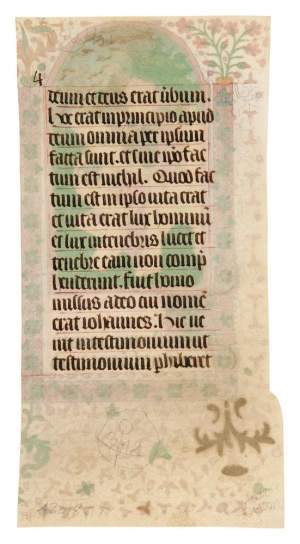 4
deum et deus erat űbum.
hoc erat in principio apud
deum omnia per ipsum
facta sunt. et sine ip̃o fac
tum est nichil. Quod fac
tum est in ip̃o vita erat
et vita erat lux hominũ
et lux in tenebris lucet et
tenebre eam non comp̃
henderunt. Fuit homo
missus a deo cui nomẽ
erat iohannes. hic ve
nit in testimonium ut
testimonium phiberet